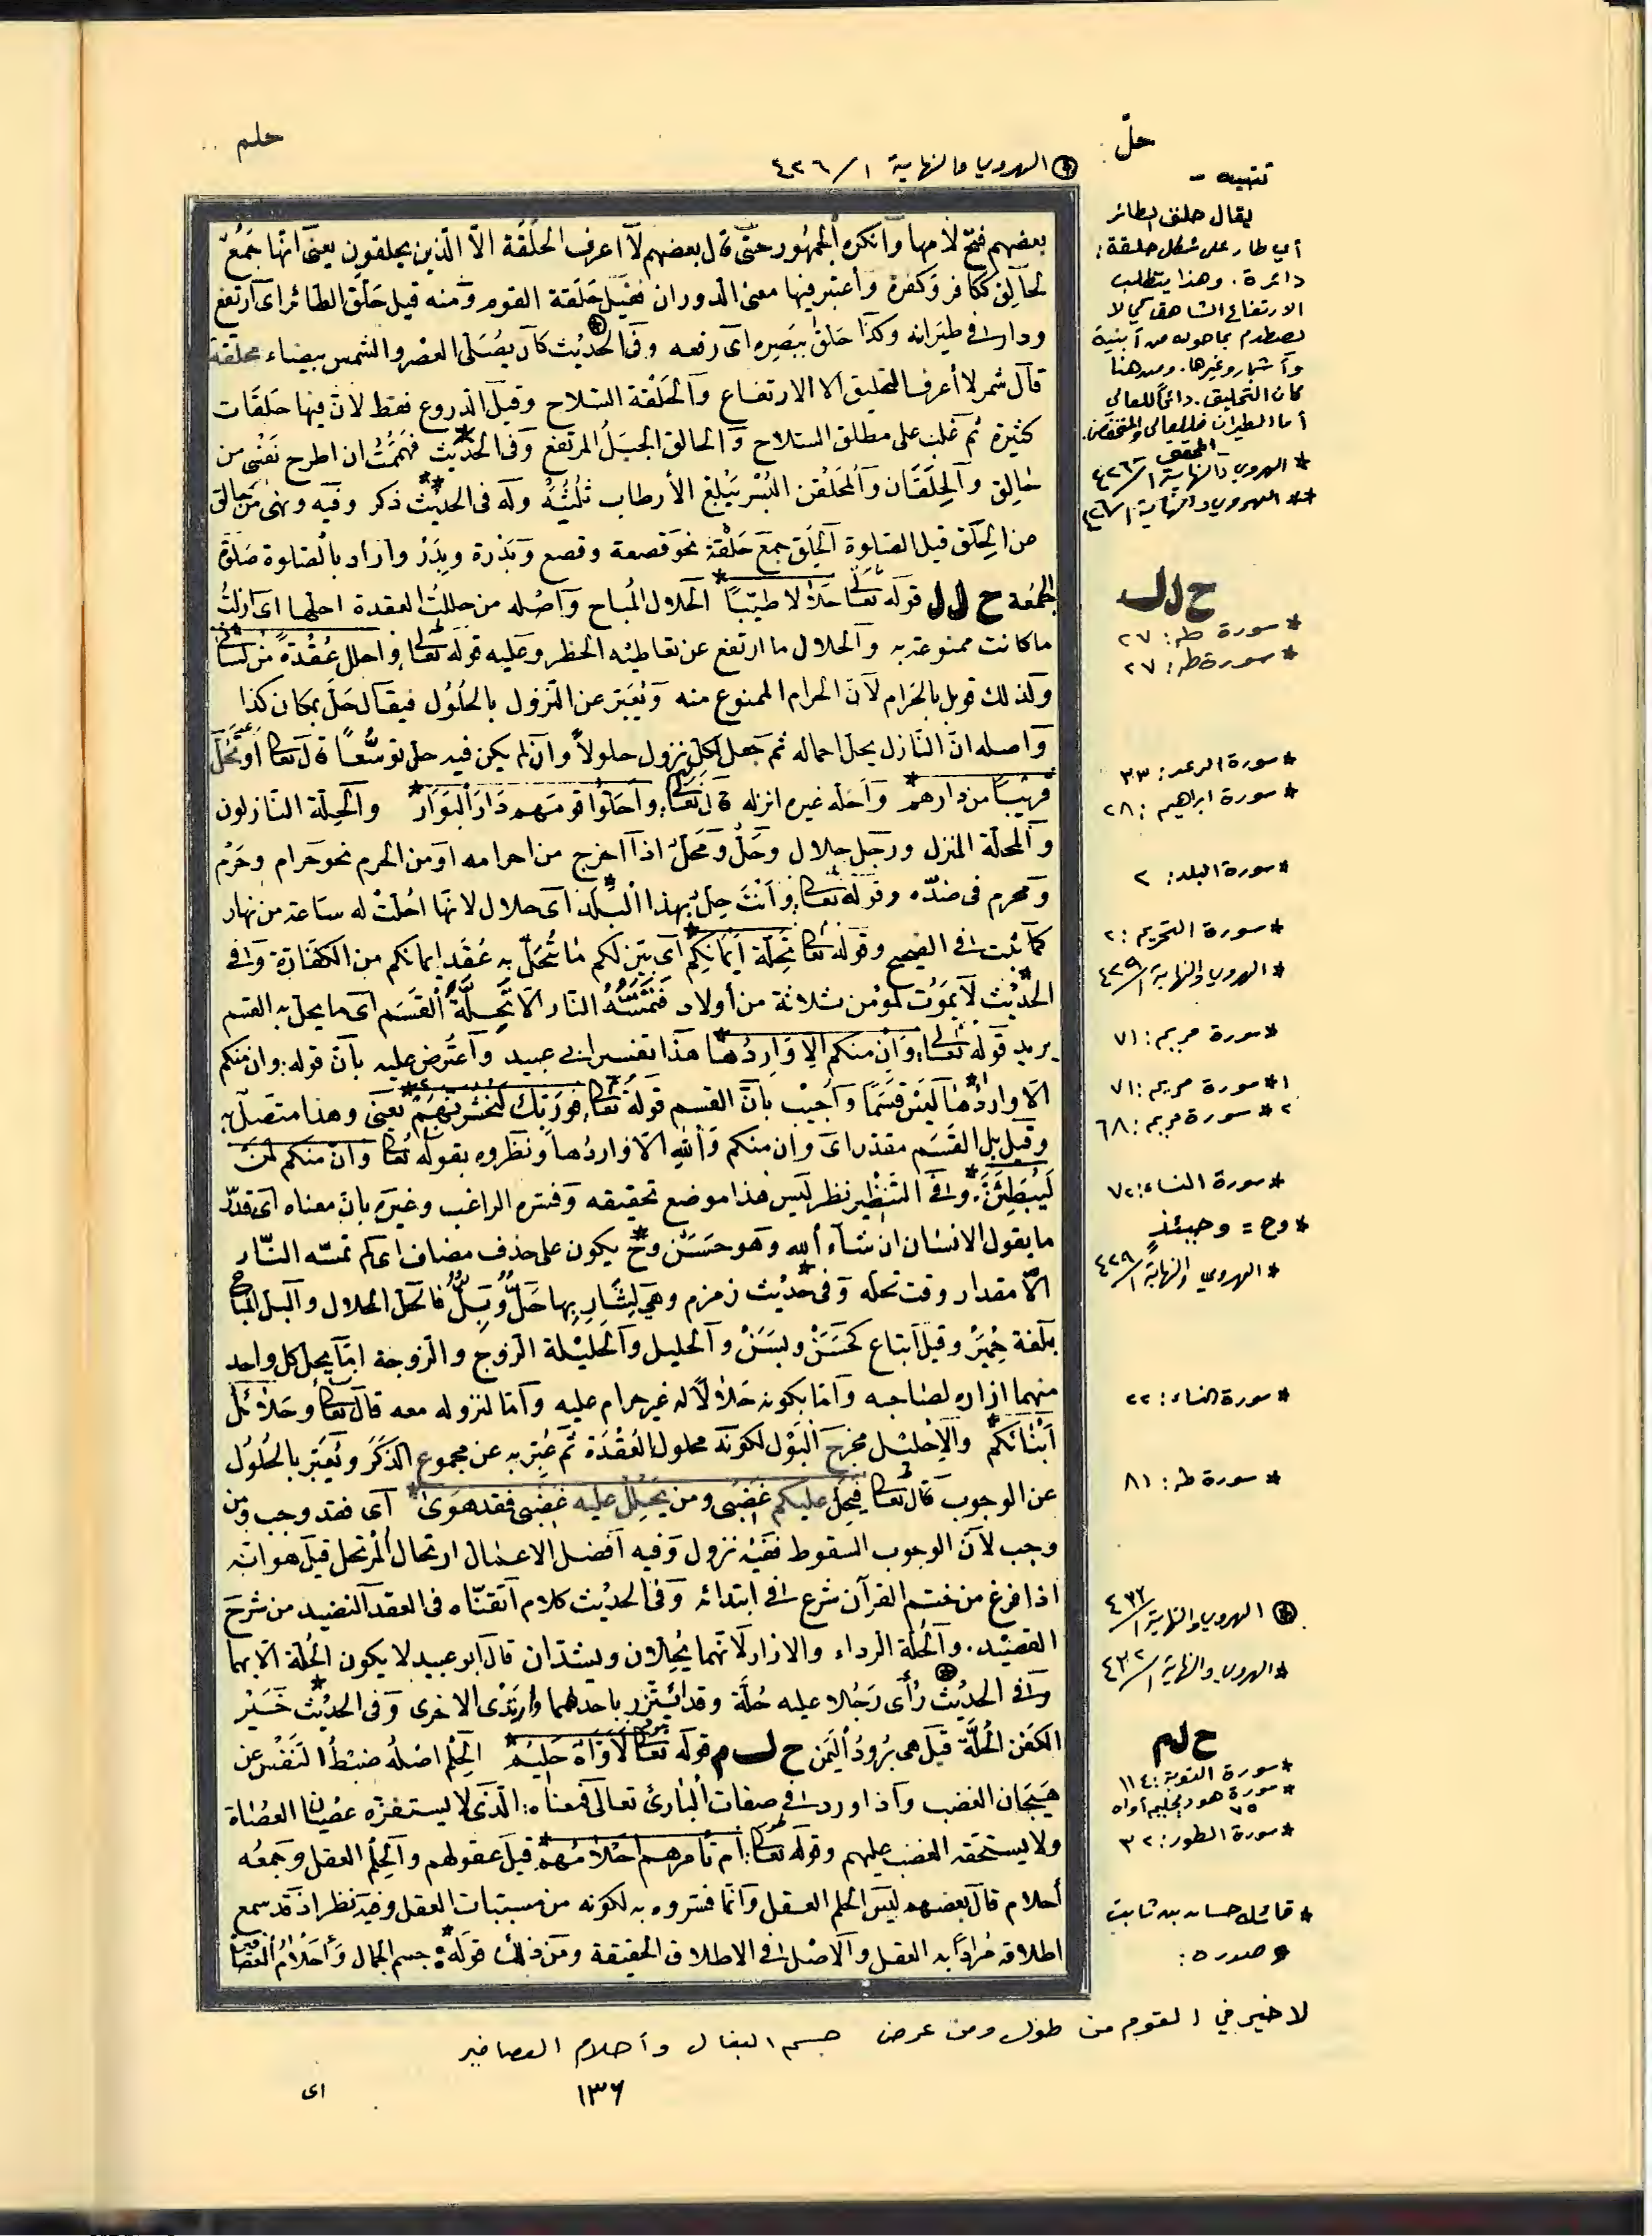 حلّ
حلم
⊛ الهروي والنهاية ١/٤٢٦
بعضهم فتح لامها وأنكره الجمهور حتى قال بعضهم لا اعرف الحلَقَة الاّ الّذين يحلقون يعنى انّها جَمْعُ
لحالِق ككافر وكَفَرَة وأعتبر فيها معنى الدوران فقيل حَلَقة القوم ومنه قيل حَلّق الطائر اى ارتفع
ودار فى طيرانه وكذا حَلّق ببَصَرِه اى رفعه وفى الحديث كان يصلى العصر والشمس بيضاء محلّقة
قال شمر لا أعرف التحليق الا الارتفاع والحَلْقة السّلاح وقيل الدروع فقط لانّ فيها حَلَقات
كثيرة ثم غلب على مطلق السلاح والحالق الجبَل المرتفع وفى الحديث فهَمَمْتُ ان اطرح نفسى من
حالِق والحِلقان والمحلقن البُسْر يبلغ الأرطاب ثلثيْه وله فى الحديث ذكر وفيه ونهى عن حالق
من الحِلَق قبل الصّلوة الحِلَق جمع حَلْقة نحو قصعة وقصع وبَدْرة وبِدَر واراد بالصلوة صَلوة
الجمُعة ح ل ل قوله تعالى حَلَالا طيّبًا الحلال المُباح وأصْله من حللتُ العقدة احلها اى ازلتُ
ما كانت ممنوعة به والحلال ما ارتفع عن تعاطيه الحظر وعليه قوله تعالى واحلل عُقْدةً من لسانى
ولذلك قوبل بالحرام لأنّ الحرام الممنوع منه ويُعَبّر عن النزول بالحُلُول فيقال حَلّ بمكان كذا
واصله انّ النازل يحلّ احماله ثم جعل لكل نزول حلولاً وان لم يكن فيه حلّ توسُّعًا قال تعالى أو تَحُلّ
قريبًا من دارهم وأحَله غيره انزله قال تعالى وأحَلّوا قومهم دَارَ البَوَار والحِلّة النازلون
والمحلّة المنزل ورجل حلال وحَلٌّ ومُحَلّ اذا اخرج من احرامه او من الحرم نحو حَرام وحَرْم
ومحرم فى ضدّه وقوله تعالى وأنْتَ حِلٌّ بهذا البَلَد اى حلال لانّها أحلّتْ له ساعة من نهار
كما ثبت فى الصحيح وقوله تعالى تَحِلّةَ أيْمَانِكم اى بيّن لكم ما تُحَلّ به عُقَد ايمانكم من الكفارة وفى
الحديث لا يَمُوت لمؤمن ثلاثة من أولاد فتَمَسّه النار الا تَحِلّة القَسَم اى ما يحل به القسم
يريد قوله تعالى وإن منكم إلا وَارِدُها هذا تفسير ابى عبيد وأعْتُرض عليه بانّ قوله: وان منكم
الاّ واردُها ليس قَسَمًا وأجيب بانّ القسم قوله تعالى فوربّك لنحشُرنّهم يعنى وهذا متصل به
وقيل بل القَسَم مقدّر اى وان منكم والله الاّ واردُها ونظّروه بقوله تعالى وانّ منكم لمَنْ
ليُبَطّئَنّ وفى التنظير نظر ليس هذا موضع تحقيقه وفسّره الراغب وغيره بانّ معناه اى قدْر
ما يقول الانسان ان شاء الله وهو حَسَن وح يكون على حذف مضاف اى لم تمسّه النّار
الاّ مقدار وقت تحلّه وفى حديث زمزم وهى لشارِبها حِلٌّ وبِلٌّ فالحل الحلال والبل المباح
بلغة حِمْيَر وقيل اتباع كحَسَنْ وبَسَنْ والحليل والحَليْلة الزوج والزوجة امّا يحلّ كل واحد
منهما ازاره لصَاحبه وامّا بكونه حَلالاً له غير حرام عليه وأمّا لنزوله معه قال تعالى وحلائل
أبنائكم والإحليل مخرج البَوْل لكونه محلول العُقْدَة ثم عُبّر به عن مجموع الذكَر ويُعَبّر بالحُلُول
عن الوجوب قال تعالى فيحِلّ عليكم غَضَبى ومن يَحْلِلْ عليه غضبى فقد هَوَى اى فقد وجب ومن
وجب لأنّ الوجوب السقوط ففيْه نزول وفيه أفضل الاعمال ارتحال المرتحل قيل هو انّه
اذا فرغ من ختم القرآن شرع فى ابتدائه وفى الحديث كلام أتقنّاه فى العقد النضيد من شرح
القصيد. والحُلّة الرداء والازار لانّهما يُحلّان ويشدّان قال ابو عبيد لا يكون الحُلّة الاّ بهما
وفى الحديث رأى رَجُلا عليه حُلّة وقد ائتزر باحدهما وارتدى الاخرى وفى الحديث خَيْر
الكفن الحُلّة قيل هى بُرودُ اليَمَن ح ل م قوله تعالى لأوّاهٌ حَليْمٌ الحِلْم اصلهُ ضبْطُ النفْس عن
هيَجَان الغضب وأذا ورد فى صفات البارئ تعالى فمعناه: الّذى لا يستفزّه عصْيان العُصَاة
ولا يستخفه الغضب عليهم وقوله تعالى: أم تأمرهم أحْلامُهم قيل عقولهم والحِلْم العقل وجمعُه
أحلام قال بعضهم ليس الحلم العقل وانّما فسّروه به لكونه من مسبّبات العقل وفيه نظر اذ قد سمع
اطلاقه مُرادًا به العقل والاصْل فى الاطلاق الحقيقة ومن ذلك قوله: جسم الجمال وأحلامُ العصافير
تنبيه -
يقال حلق الطائر
أي طار على شكل حلقة:
دائرة. وهذا يتطلب
الارتفاع الشاهق كي لا
يصطدم بما حوله من أبنية
وأشجار وغيرها. ومن هنا
كان التحليق. دائماً للعالي
أما الطيران فللعالي والمنخفض.
المحقق
* الهروي والنهاية ١/٤٢٦
** الهروي والنهاية ١/٤٢٦
ح ل ل
* سورة طه: ٢٧
* سورة طه: ٢٧
* سورة الرعد: ٣٣
* سورة ابراهيم: ٢٨
* سورة البلد: ٢
* سورة التحريم: ٢
* الهروي والنهاية ١/٤٢٩
* سورة مريم: ٧١
١* سورة مريم: ٧١
٢* سورة مريم: ٦٨
* سورة النساء: ٧٢
* وح = وحينئذٍ
* الهروي والنهاية ١/٤٢٩
* سورة النساء: ٢٣
* سورة طه: ٨١
⊛ الهروي والنهاية ١/٤٣٢
* الهروي والنهاية ١/٤٣٢
ح ل م
* سورة التوبة: ١١٤
* سورة هود لحليم أواه
٧٥
* سورة الطور: ٣٢
* قائله حسان بن ثابت
* صدره:
لا خير في القوم من طول ومن عرض جسم البغال وأحلام العصافير
١٣٦
اى